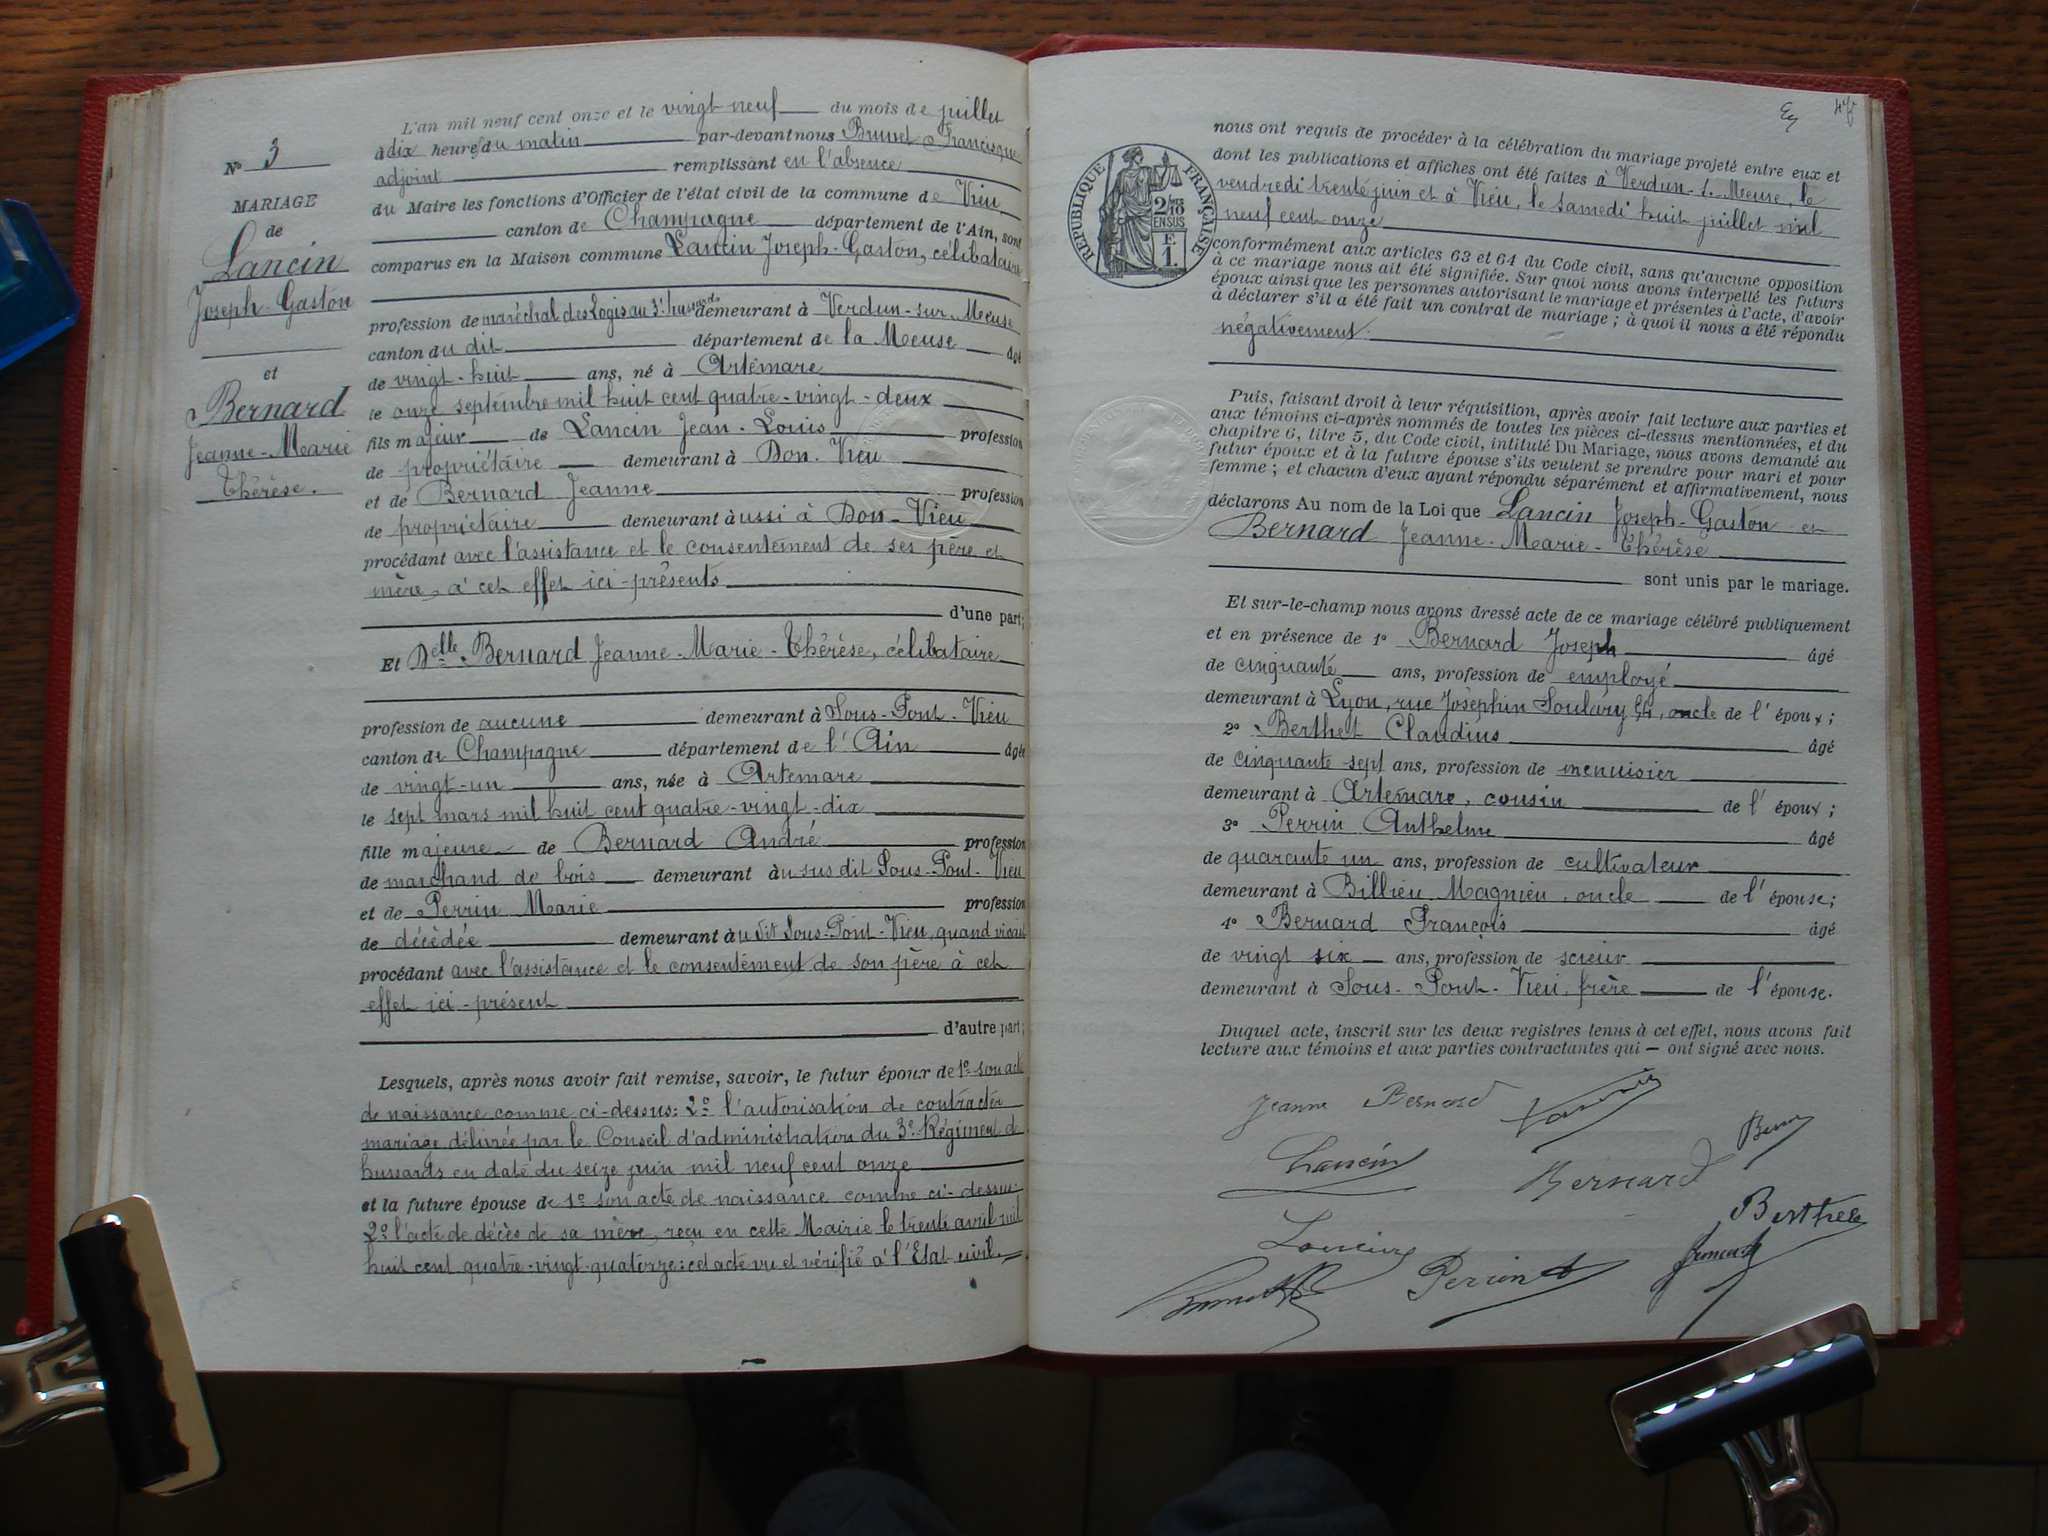 N° 3
MARIAGE
de
Lancin
Joseph-Gaston
et
Bernard
Jeanne-Marie
Thérèse.
L'an mil neuf cent onze et le vingt neuf du mois de juillet
à dix heures du matin par-devant nous Brunet Francisque
adjoint remplissant en l'absence
du Maire les fonctions d'Officier de l'état civil de la commune de Vieu,
canton de Champagne département de l'Ain, sont
comparus en la Maison commune Lancin Joseph-Gaston, célibataire
profession de maréchal des Logis au 3e hussards demeurant à Verdun-sur-Meuse
canton du dit département de la Meuse âgé
de vingt-huit ans, né à Artemare
le onze septembre mil huit cent quatre-vingt-deux
fils majeur de Lancin Jean-Louis profession
de propriétaire demeurant à Don-Vieu
et de Bernard Jeanne profession
de propriétaire demeurant aussi à Don-Vieu
procédant avec l'assistance et le consentement de ses père et
mère, à cet effet ici-présents
d'une part;
Et Delle Bernard Jeanne-Marie-Thérèse, célibataire
profession de aucune demeurant à Sous-Pont-Vieu
canton de Champagne département de l'Ain âgée
de vingt-un ans, née à Artemare
le sept mars mil huit cent quatre-vingt-dix
fille majeure de Bernard André profession
de marchand de bois demeurant au sus dit Sous-Pont-Vieu
et de Perrin Marie profession
de décédée demeurant au dit Sous-Pont-Vieu, quand vivait
procédant avec l'assistance et le consentement de son père à cet
effet ici-présent
d'autre part;
Lesquels, après nous avoir fait remise, savoir, le futur époux de 1° son acte
de naissance comme ci-dessus: 2° l'autorisation de contracter
mariage délivrée par le Conseil d'administration du 3e Régiment de
hussards en date du seize juin mil neuf cent onze
et la future épouse de 1° son acte de naissance comme ci-dessus
2° l'acte de décès de sa mère, reçu en cette Mairie le trente avril mil
huit cent quatre-vingt-quatorze: cet acte vu et vérifié à l'Etat civil.
RÉPUBLIQUE FRANÇAISE
2/10
EN SUS
F.
1.
nous ont requis de procéder à la célébration du mariage projeté entre eux et
dont les publications et affiches ont été faites à Verdun-s-Meuse, le
vendredi trente juin et à Vieu, le samedi huit juillet mil
neuf cent onze
conformément aux articles 63 et 64 du Code civil, sans qu'aucune opposition
à ce mariage nous ait été signifiée. Sur quoi nous avons interpellé les futurs
époux ainsi que les personnes autorisant le mariage et présentes à l'acte, d'avoir
à déclarer s'il a été fait un contrat de mariage; à quoi il nous a été répondu
négativement.
Puis, faisant droit à leur réquisition, après avoir fait lecture aux parties et
aux témoins ci-après nommés de toutes les pièces ci-dessus mentionnées, et du
chapitre 6, titre 5, du Code civil, intitulé Du Mariage, nous avons demandé au
futur époux et à la future épouse s'ils veulent se prendre pour mari et pour
femme; et chacun d'eux ayant répondu séparément et affirmativement, nous
déclarons Au nom de la Loi que Lancin Joseph-Gaston et
Bernard Jeanne-Marie-Thérèse
sont unis par le mariage.
Et sur-le-champ nous avons dressé acte de ce mariage célébré publiquement
et en présence de 1° Bernard Joseph âgé
de cinquante ans, profession de employé
demeurant à Lyon, rue Joséphin Soulary, oncle de l'époux;
2° Berthet Claudius âgé
de cinquante-sept ans, profession de menuisier
demeurant à Artemare, cousin de l'époux;
3° Perrin Anthelme âgé
de quarante un ans, profession de cultivateur
demeurant à Billieu Magnieu, oncle de l'épouse;
4° Bernard François âgé
de vingt six ans, profession de scieur
demeurant à Sous-Pont-Vieu, frère de l'épouse.
Duquel acte, inscrit sur les deux registres tenus à cet effet, nous avons fait
lecture aux témoins et aux parties contractantes qui — ont signé avec nous.
Jeanne Bernard
Lancin
Bernard
Berthet
Lancin
Perrin